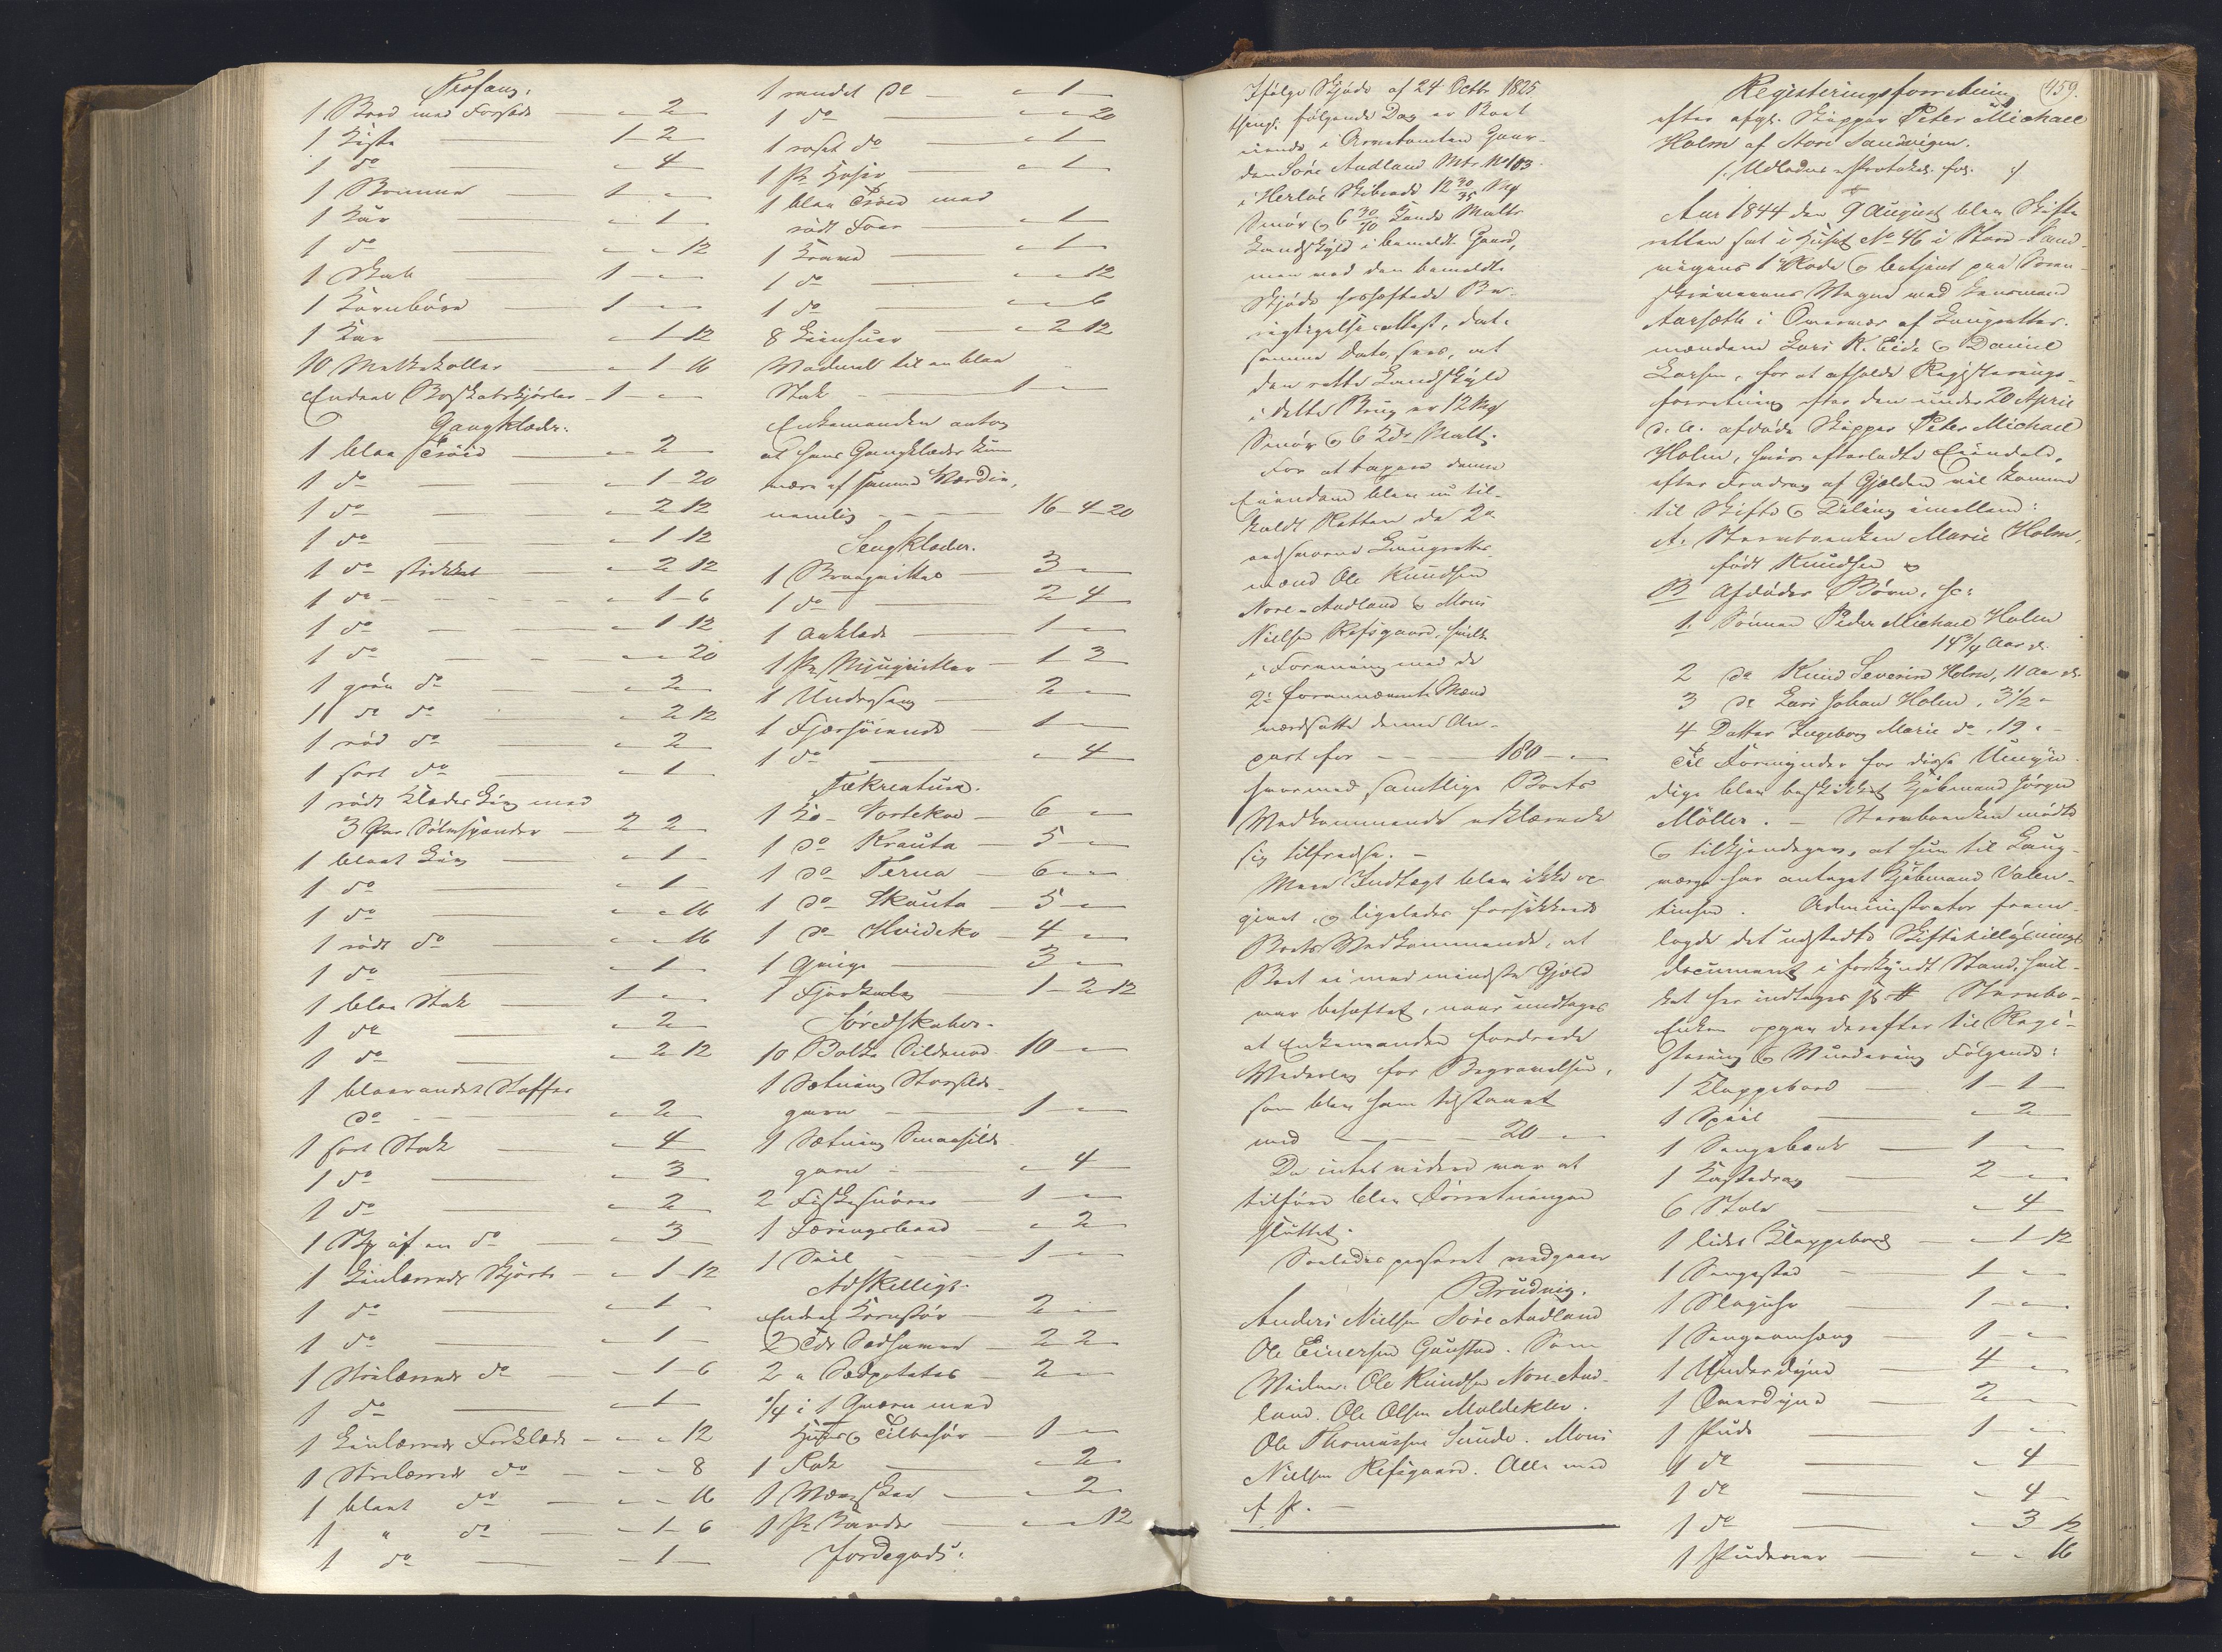 1 Bord med Forsæde — " 2 —
1 Kiste — 1 - 2 —
1 do — " 4 —
1 — 1 " —
1 Kar — " 1 —
1 do — " " 12
1 Skab — 1 " —
1 Kornbøre — 1 " —
1 Kar — " 1 12
10 Melkekoller — " 1 16
Endeel Boskabskjørler — 1 " "
Gangklæder:
1 blaa Trøie — " 2 —
1 do — " 1 - 20
1 do — " 2 12
1 do — " 1 - 12
1 do strikket — " 2 12
1 do — " 1 - 6
1 do — " 1 12
1 do — " " 20
1 grøn do — " 2 —
1 do do — " 2 12
1 rød do — " 2 —
1 sort do — " 1 —
1 rødt Klædes Liv med
3 Par Sølvspænder — 2 2 —
1 blaat Liv — " 1 —
1 do — " 1 —
1 do — " " 16
1 rødt do — " " 16
1 do — " 1 —
1 blaa Stak — 1 " —
1 do — " 2 —
1 do — " 2 12
1 blaarandet Stoffes
do — " 2 —
1 sort Stak — " 4 —
1 do — " 3 —
1 do — " 2 —
1 Stk af en do — " 3 —
1 Linlærreds Skjorte — " 1 - 12
1 do — " 1 —
1 do — " 1 —
1 Strilærreds do — " 1 - 6
1 do — " 1 —
1 Linlærreds Forklæde — " " 12
1 Strilærreds do — " " 8
1 blaat do — " " 16
1 " do — " 1 - 6
1 do — " 1 —
1 randet do — " 1 —
1 do — " " 20
1 roset do — " 1 —
1 Pr Hoser — " 1 —
1 blaa Trøie med
rødt Foer — " 1 —
1 Krave — " 1 —
1 do — " " 12
1 do — " " 6
8 Liinhuer — " 2 12
Vadmel til en blaa
Stak — 1 " —
Enkemanden antog
at hans Gangklæder kun
være af samme Værdie,
nemlig — 16 - 4 - 20
Sengklæder.
1 — 3 " —
1 do — 2 4 —
1 Aaklæde — 1 " —
1 Pr — 1 2 —
1 Underseng — 2 " —
1 Fjærhøiende — 1 " —
1 do — " 4 —
Fækreature.
1 Ko — 6 " —
1 do Krauta — 5 " —
1 do Terna — 6 " —
1 do Skauta — 5 " —
1 do Hvideko — 4 " —
1 Qvige — 3 " —
1 Fjorkalv — 1 - 2 12
Søredskaber.
10 Bolke Sildenod — 10 " —
1 Sætning Storsilde-
garn — 1 " —
1 Sætning Smaasilde-
garn — " 4 —
2 Fiskesnører — 1 " —
1 Færingsbaad — " 2 —
1 Seil — 1 " —
Adskilligt.
Endeel Kornfør — 2 " —
2 Tdr Sædhavre — 2 2 —
2 " Sædpotates — 2 " —
1/4 i 1 Qværn med
Huus & Tilbehør — 1 " —
1 Rok — " 2 —
1 — " 2 —
1 Pr Karder — " " 12
Jordegods:
Ifølge Skjøde af 24 Octbr 1825
thingl. følgende Dag er Boet
eiende i Arvetomten Gaar-
den Søre Audland Mtr. No 103
i Herløe Skibrede 12 20/35 Mk
Smør & 6 30/70 Kande Malts
Landskyld i bemeldte Gaard,
men ved den bemeldte
Skjøde hosheftede Be-
rigtigelse attest, dat.
samme Dato, sees, at
den rette Landskyld
i dette Brug er 12 Mk
Smør & 6 Kdr Malt.
For at taxere denne
Eiendom blev nu til-
kaldt Retten de 2de
edsvorne Laugrettes-
mænd Ole Knudsen
Nore-Audland & Mons
Nielsen Refsgaard, hvilke
i Forening med de
2de forannævnte Mænd
værdsatte denne An-
part for — 180 — "
hvormed samtlige Boets
Vedkommende erklærede
sig tilfredse. —
Mere Indtægt blev ikke op-
givet, og ligeledes forsikkrede
Boets Vedkommende, at
Boet ei med mindste Gjæld
var beheftet, naar undtages
at Enkemanden fordrede
Vederlag for Begravelsen,
som blev ham tilstaaet
med — 20 — "
Da intet videre var at
tilføre blev Forretningen
sluttet.
Saaledes passeret vedgaaer
Brudvig.
Anders Nielsen Søre Audland
Ole Einersen Gaustad. Som
Vidner: Ole Knudsen Nore Aud-
land. Ole Olsen Moldeklev.
Ole Thomassen Sunde. Mons
Nielsen Refsgaard. Alle med
f. P. —
459.
Registeringsforretning
efter afg. Skipper Peter Michael
Holm af Store Sandvigen.
Aar 1844 den 9 August blev Skifte
retten sat i Huset No 46 i Store Sand-
vigens 1ste Rode & betjent paa Soren-
skriverens Vegne med Lensmand
Aarsæth i Overvær af Laugrettes-
mændene Lars K. Eide & Daniel
Larsen, for at afholde Registerings-
forretning efter den under 20 April
d. A. afdøde Skipper Peter Michael
Holm, hvis efterladte Eiendele,
efter Fradrag af Gjælden vil komme
til Skifte & Deling imellem:
A. Stervboenken Marie Holm,
født Knudsen &
B Afdødes Børn, sc:
1. Sønnen Peder Michael Holm
14 3/4 Aar gl.
2 do Knud Severin Holm, 11 Aar gl.
3 do Lars Johan Holm, 3 1/2 "
4 Datter Ingeborg Marie do, 19 "
Til Formynder for disse Umyn-
dige blev beskikket Kjøbmand Jørgen
Møller. — Stervboenken mødte
& tilkjendegav, at hun til Laug-
værge har antaget Kjøbmand Valen-
tinsen. Administrator frem-
lagde det udstedte Skiftetillysnings
document i forkyndt Stand, hvil-
ket her indtages sub # Stervbo-
Enken opgav derefter til Regi-
stering & Vurdering Følgende:
1 Klappebord — 1 - 1 —
1 Speil — " 2 —
1 Sengebænk — 1 " —
1 — 2 " —
6 Stole — " 4 —
1 lidet Klappebord — " 1 - 12
1 Sengested — 1 " —
1 Slaguhr — 1 - " —
1 Sengeomhæng — 1 - " —
1 Underdyne — 4 " —
1 Overdyne — 2 " —
1 Pude — 1 " —
1 do — " 4 —
1 do — " 4 —
1 do — " 3 12
1 Pudevar — " " 16